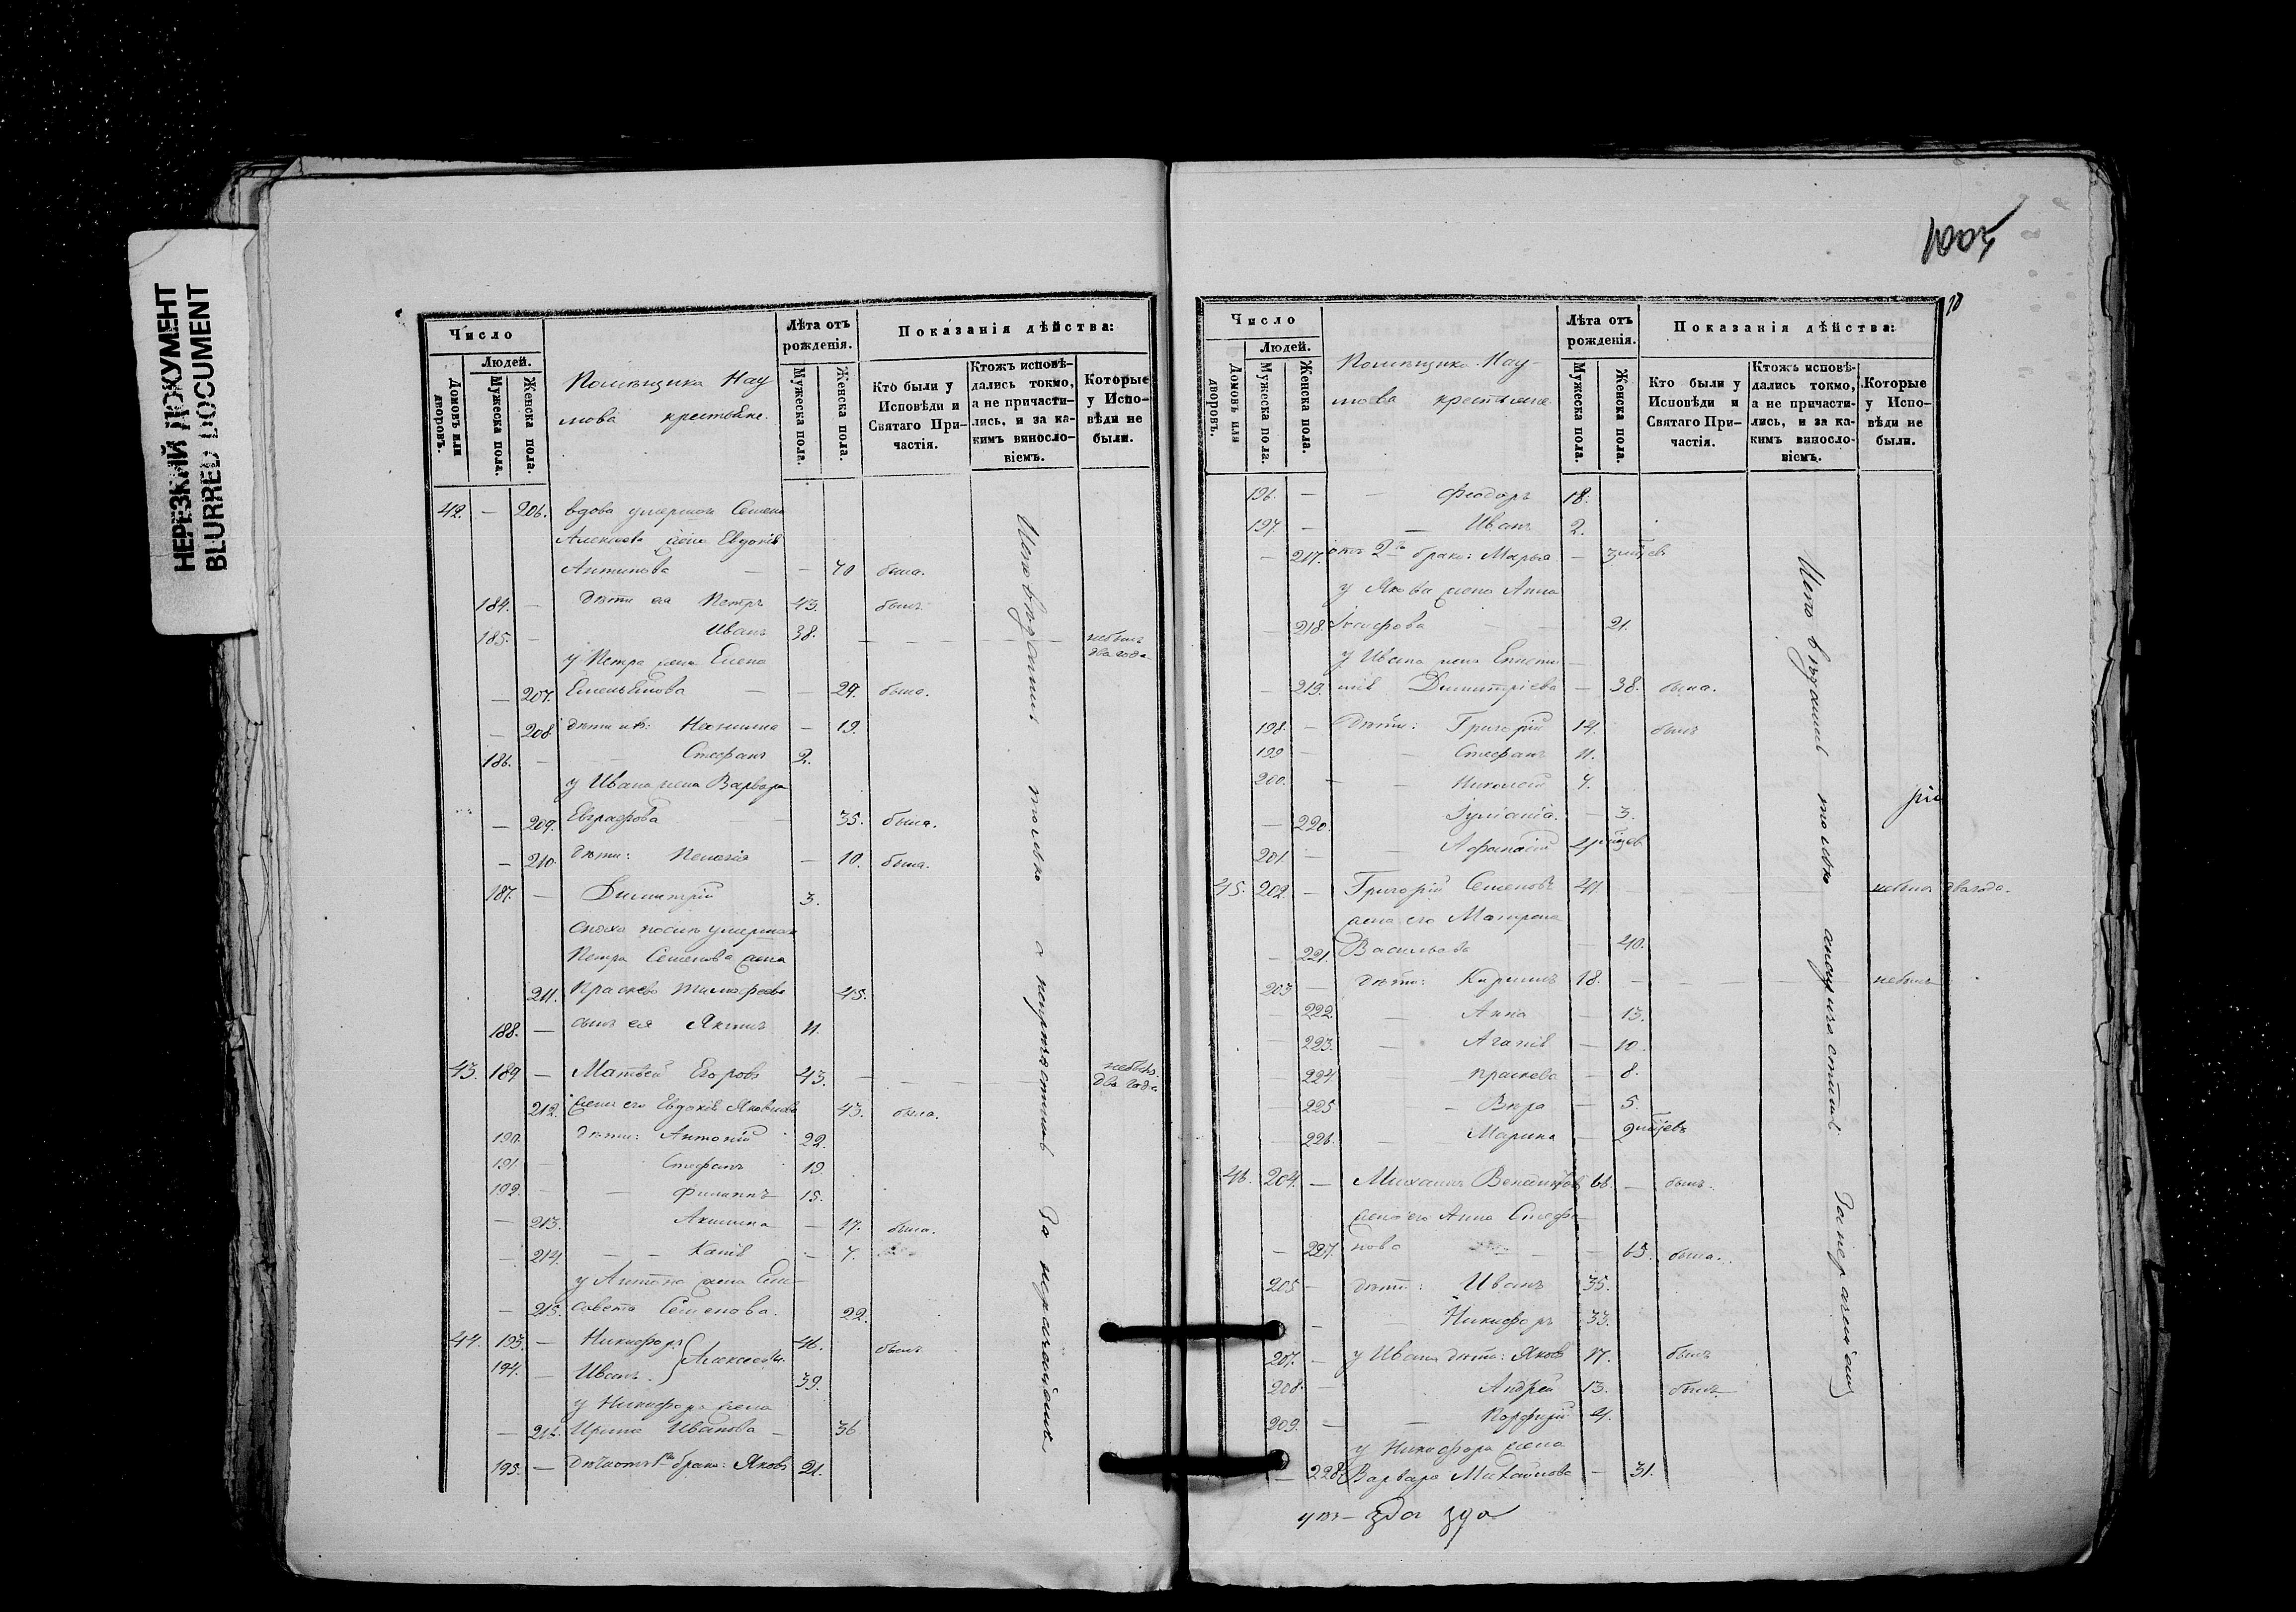 НЕРЕЗКИЙ ДОКУМЕНТ
BLURRED DOCUMENT
Число
Людей.
Домовъ или дворовъ.
Мужеска пола.
Женска пола.
Помѣщика Нау
мова крестьяне.
Лѣта отъ рожденія.
Мужеска пола.
Женска пола.
Показанія дѣйства:
Кто были у Исповѣди и Святаго Причастія.
Ктожъ исповѣдались токмо, а не причастились, и за какимъ винословіемъ.
Которые у Исповѣди не были.
42. — 206. вдова умершаго Семена
Алексѣева жена Евдокія
Антипова — — 70 была.
184. — дѣти ея Петръ 43. былъ
185. — Иванъ 38. — — — — небылъ два года
у Петра жена Елена
— 207. Емельянова — — 29. была.
— 208 дѣти ихъ: — 19.
186. — — Стефанъ 2.
у Ивана жена Варвара
— 209. Евграфова — — 35. была.
— 210. дѣти: Пелагія — 10. была.
187. — Димитрій 3.
сноха послѣ умершаго
Петра Семенова жена
211. Праскева Тимофеева 45.
188. — сынъ ея Якимъ 11.
43. 189 — Матвей Егоровъ 43. — — — небылъ два года
212. жена его Евдокія Яковлева 43. была.
190. дѣти: Антоній 22.
191. — Стефанъ 19.
192. — — Филиппъ 15.
— 213. Акилина — 17. была.
— 214. — — Капів — 7.
у Антона жена Ели—
— 215. савета Семенова. 22.
44. 193. — Никифоръ } Алексеевы. 46. былъ
194. — Иванъ. 39.
у Никифора жена
— 216. Ирина Иванова — 36
195. — дѣти отъ 1го брака: Яковъ 21.
Исповѣдались только а непричастились за нераченіемъ
Число
Людей.
Домовъ или дворовъ.
Мужеска пола.
Женска пола.
Помѣщика Нау-
мова крестьяне
Лѣта отъ рожденія.
Мужеска пола.
Женска пола.
Показанія дѣйства:
Кто были у Исповѣди и Святаго Причастія.
Ктожъ исповѣдались токмо, а не причастились, и за какимъ винословіемъ.
Которые у Исповѣди не были.
196. — — Феодоръ 18.
197. — — Иванъ 2.
— 217. отъ 2го брака: Марья — 3 мѣсяцев
у Якова жена Анна
— 218. Іосифова — — 21.
у Ивана жена Еписти—
— 219. мів Димитріева — 38. была.
198. — дѣти: Григорій 14. былъ
199 — — Стефанъ 11.
200. — — Николай 7.
— 220. Іуліанія. — 3.
201. — — Афанасій 4 мѣсяцев
45. 202. — Григорій Семеновъ 41 — — — небылъ два года.
жена его Матрена
— 221. Васильева — 40.
203 — дѣти: Кириллъ 18. — — — — небылъ
— 222. — Анна — 13.
— 223. — Агапів — 10.
— 224 — Праскева — 8.
— 225 — Вѣра — 5.
— 226. — Марина — 2 мѣсяцевъ
46. 204. — Михаилъ 66. — былъ.
жена его Анна Стефа—
— 227. нова — 65. была.
205 — дѣти: Иванъ 35.
— — Никифоръ 33.
207. — у Ивана дѣти: Яковъ 17. былъ
208. — Андрей 13. былъ
209. — — Порфирій 4.
у Никифора жена
— 228. Варвара Михайлова — 31.
Исповѣдались только анепричастились За нераченіемъ